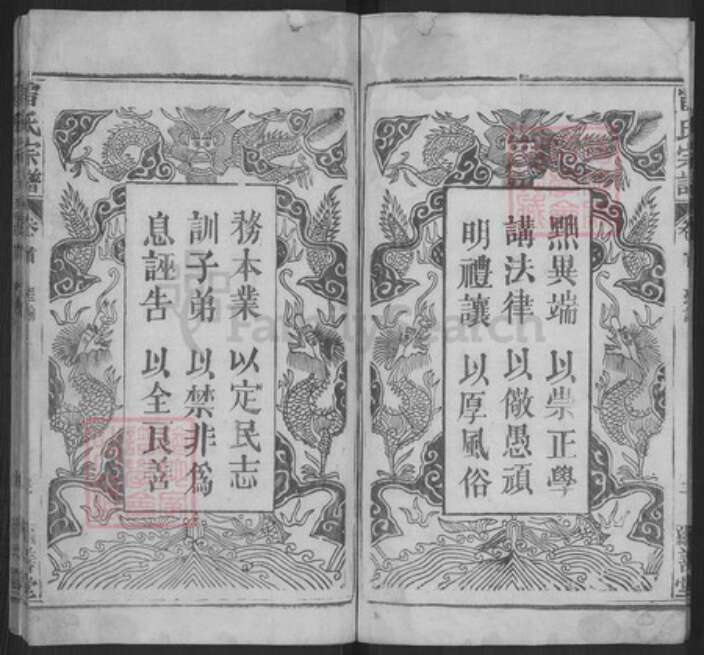 黜異端以崇正學
講法律以儆愚頑
明禮讓以厚風俗
務本業以定民志
訓子弟以禁非為
息誣告以全良善
雷氏宗譜
卷首
FamilySearch